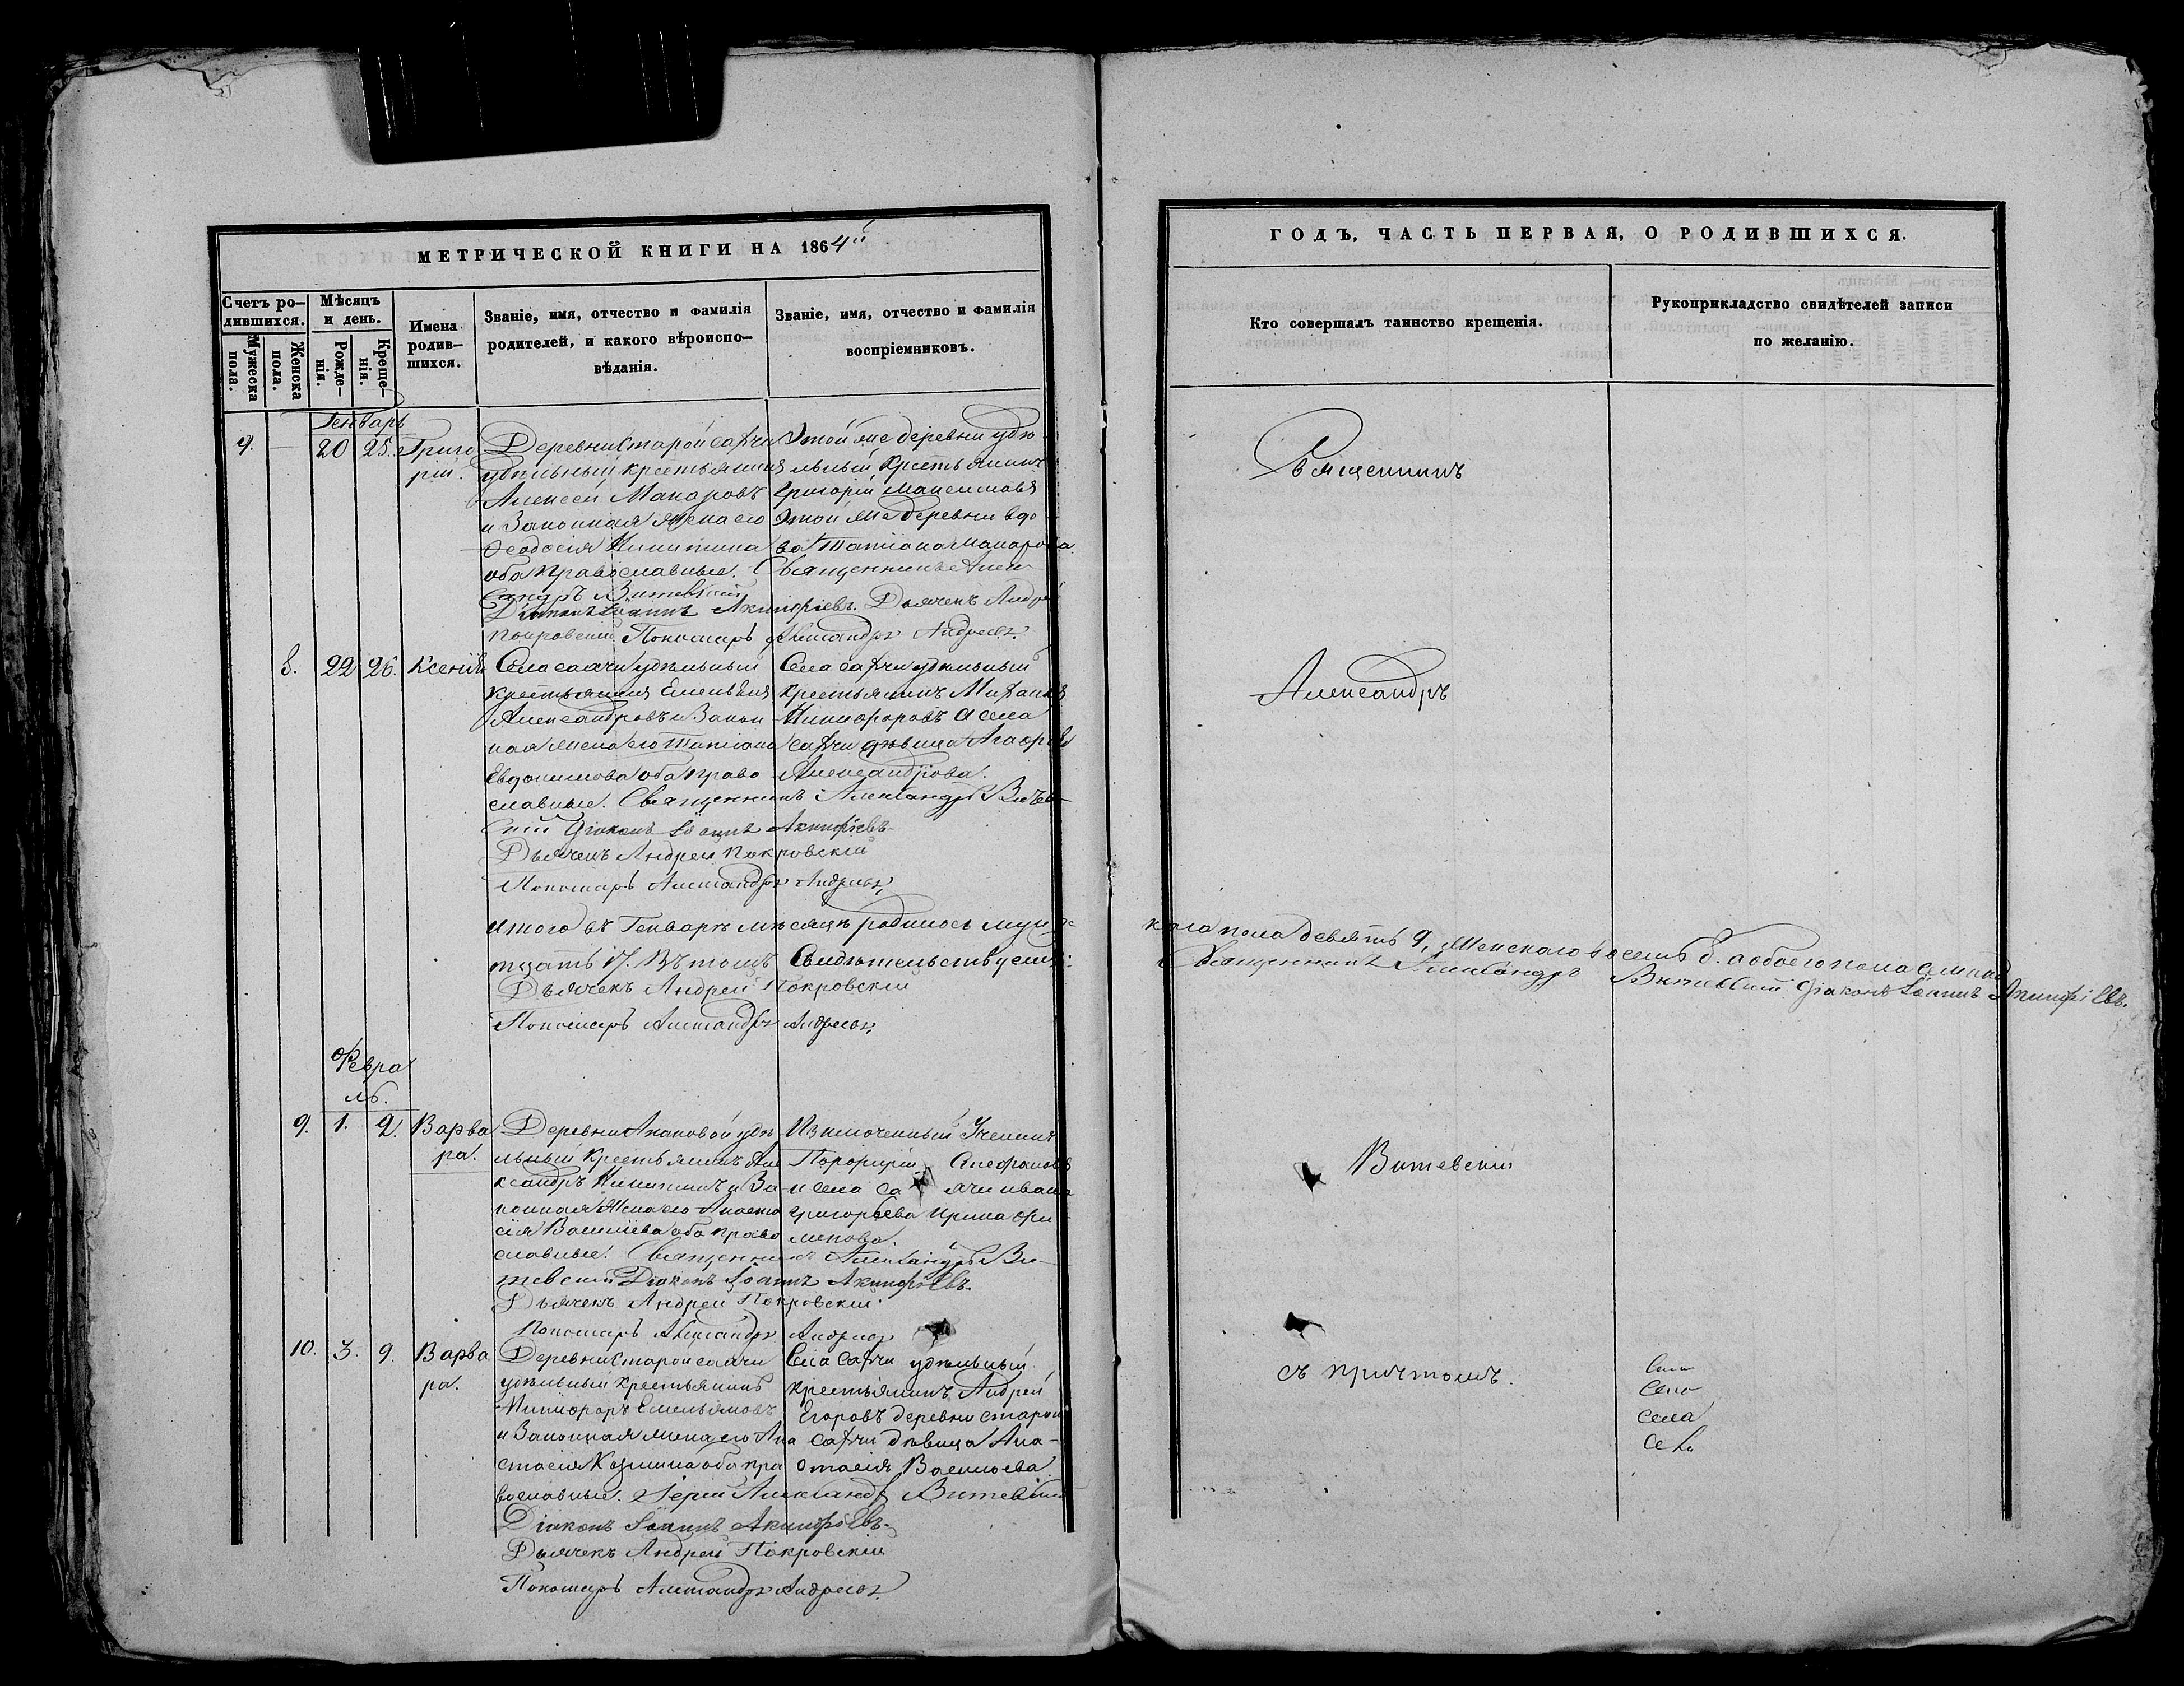 МЕТРИЧЕСКОЙ КНИГИ НА 1864й
Счетъ ро-
дившихся.
Мѣсяцъ
и день.
Мужеска
пола.
Женска
пола.
Рожде-
нія.
Креще-
нія.
Имена
родив-
шихся.
Званіе, имя, отчество и фамилія
родителей, и какого вѣроиспо-
вѣданія.
Званіе, имя, отчество и фамилія
воспріемниковъ.
Генварь
9. — 20 25. Григо
рій.
Деревни Старой
удѣльный крестьянинъ
Алексей Макаровъ
и Законная жена его
Феодосія Никитина
оба православные. Священникъ Алек
сандръ Витевскій
Діаконъ Іоаннъ Акинфіевъ. Дьячекъ Андрей
Покровскій Пономарь Александръ Андреевъ.
Этой же деревни удѣ
льный Крестьянинъ
Григорій Максимовъ
Этой же деревни вдо
ва Татіана Макарова.
8. 22 26. Ксенія
Села удѣльный
крестьянинъ Емельянъ
Александровъ и Закон
ная жена его Татіана
Евдокимова оба право
славные. Священникъ Александръ Витев
скій Діаконъ Іоаннъ Акинфіевъ.
Дьячекъ Андрей Покровскій
Пономарь Александръ Андреевъ.
Села удѣльный
крестьянинъ Михаилъ
Никифоровъ а села
дѣвица
Александрова.
итого въ Генварѣ мѣсяцѣ родилось мужес
тцать 17. Въ томъ Свидѣтельствуемъ:
Дьячекъ Андрей Покровскій
Пономарь Александръ Андреевъ.
Февра
ль.
9. 1. 2. Варва
ра.
Деревни удѣ
льный Крестьянинъ Але
ксандръ Никитинъ и За
конная Жена его Анаста
сія Васильева оба право
славные. Священникъ Александръ Ви
тевскій Діаконъ Іоаннъ Акинфіевъ.
Дьячекъ Андрей Покровскій.
Пономарь Александръ Андреевъ
Изключенный Ученикъ
Порфирій
и села Ивана
Григорьева Ирина Фи
липова.
10. 3. 9. Варва
ра.
Деревни Старой
удѣльный крестьянинъ
Никифоръ Емельяновъ
и Законная жена его Ана
стасія Козмина оба пра
вославные. Іерей Александръ Витевскій
Діаконъ Іоаннъ Акинфіевъ.
Дьячекъ Андрей Покровскій
Пономарь Александръ Андреевъ.
Села удѣльный
крестьянинъ Андрей
Егоровъ деревни старой
дѣвица Ана-
стасія Васильева.
ГОДЪ, ЧАСТЬ ПЕРВАЯ, О РОДИВШИХСЯ.
Кто совершалъ таинство крещенія.
Рукоприкладство свидѣтелей записи
по желанію.
Священникъ
Александръ
каго пола девять 9, Женскаго восемь 8. а обоего пола семнад
Священникъ Александръ Витевскій Діаконъ Іоаннъ Акинфіевъ.
Витевскій
съ причтомъ.
Села